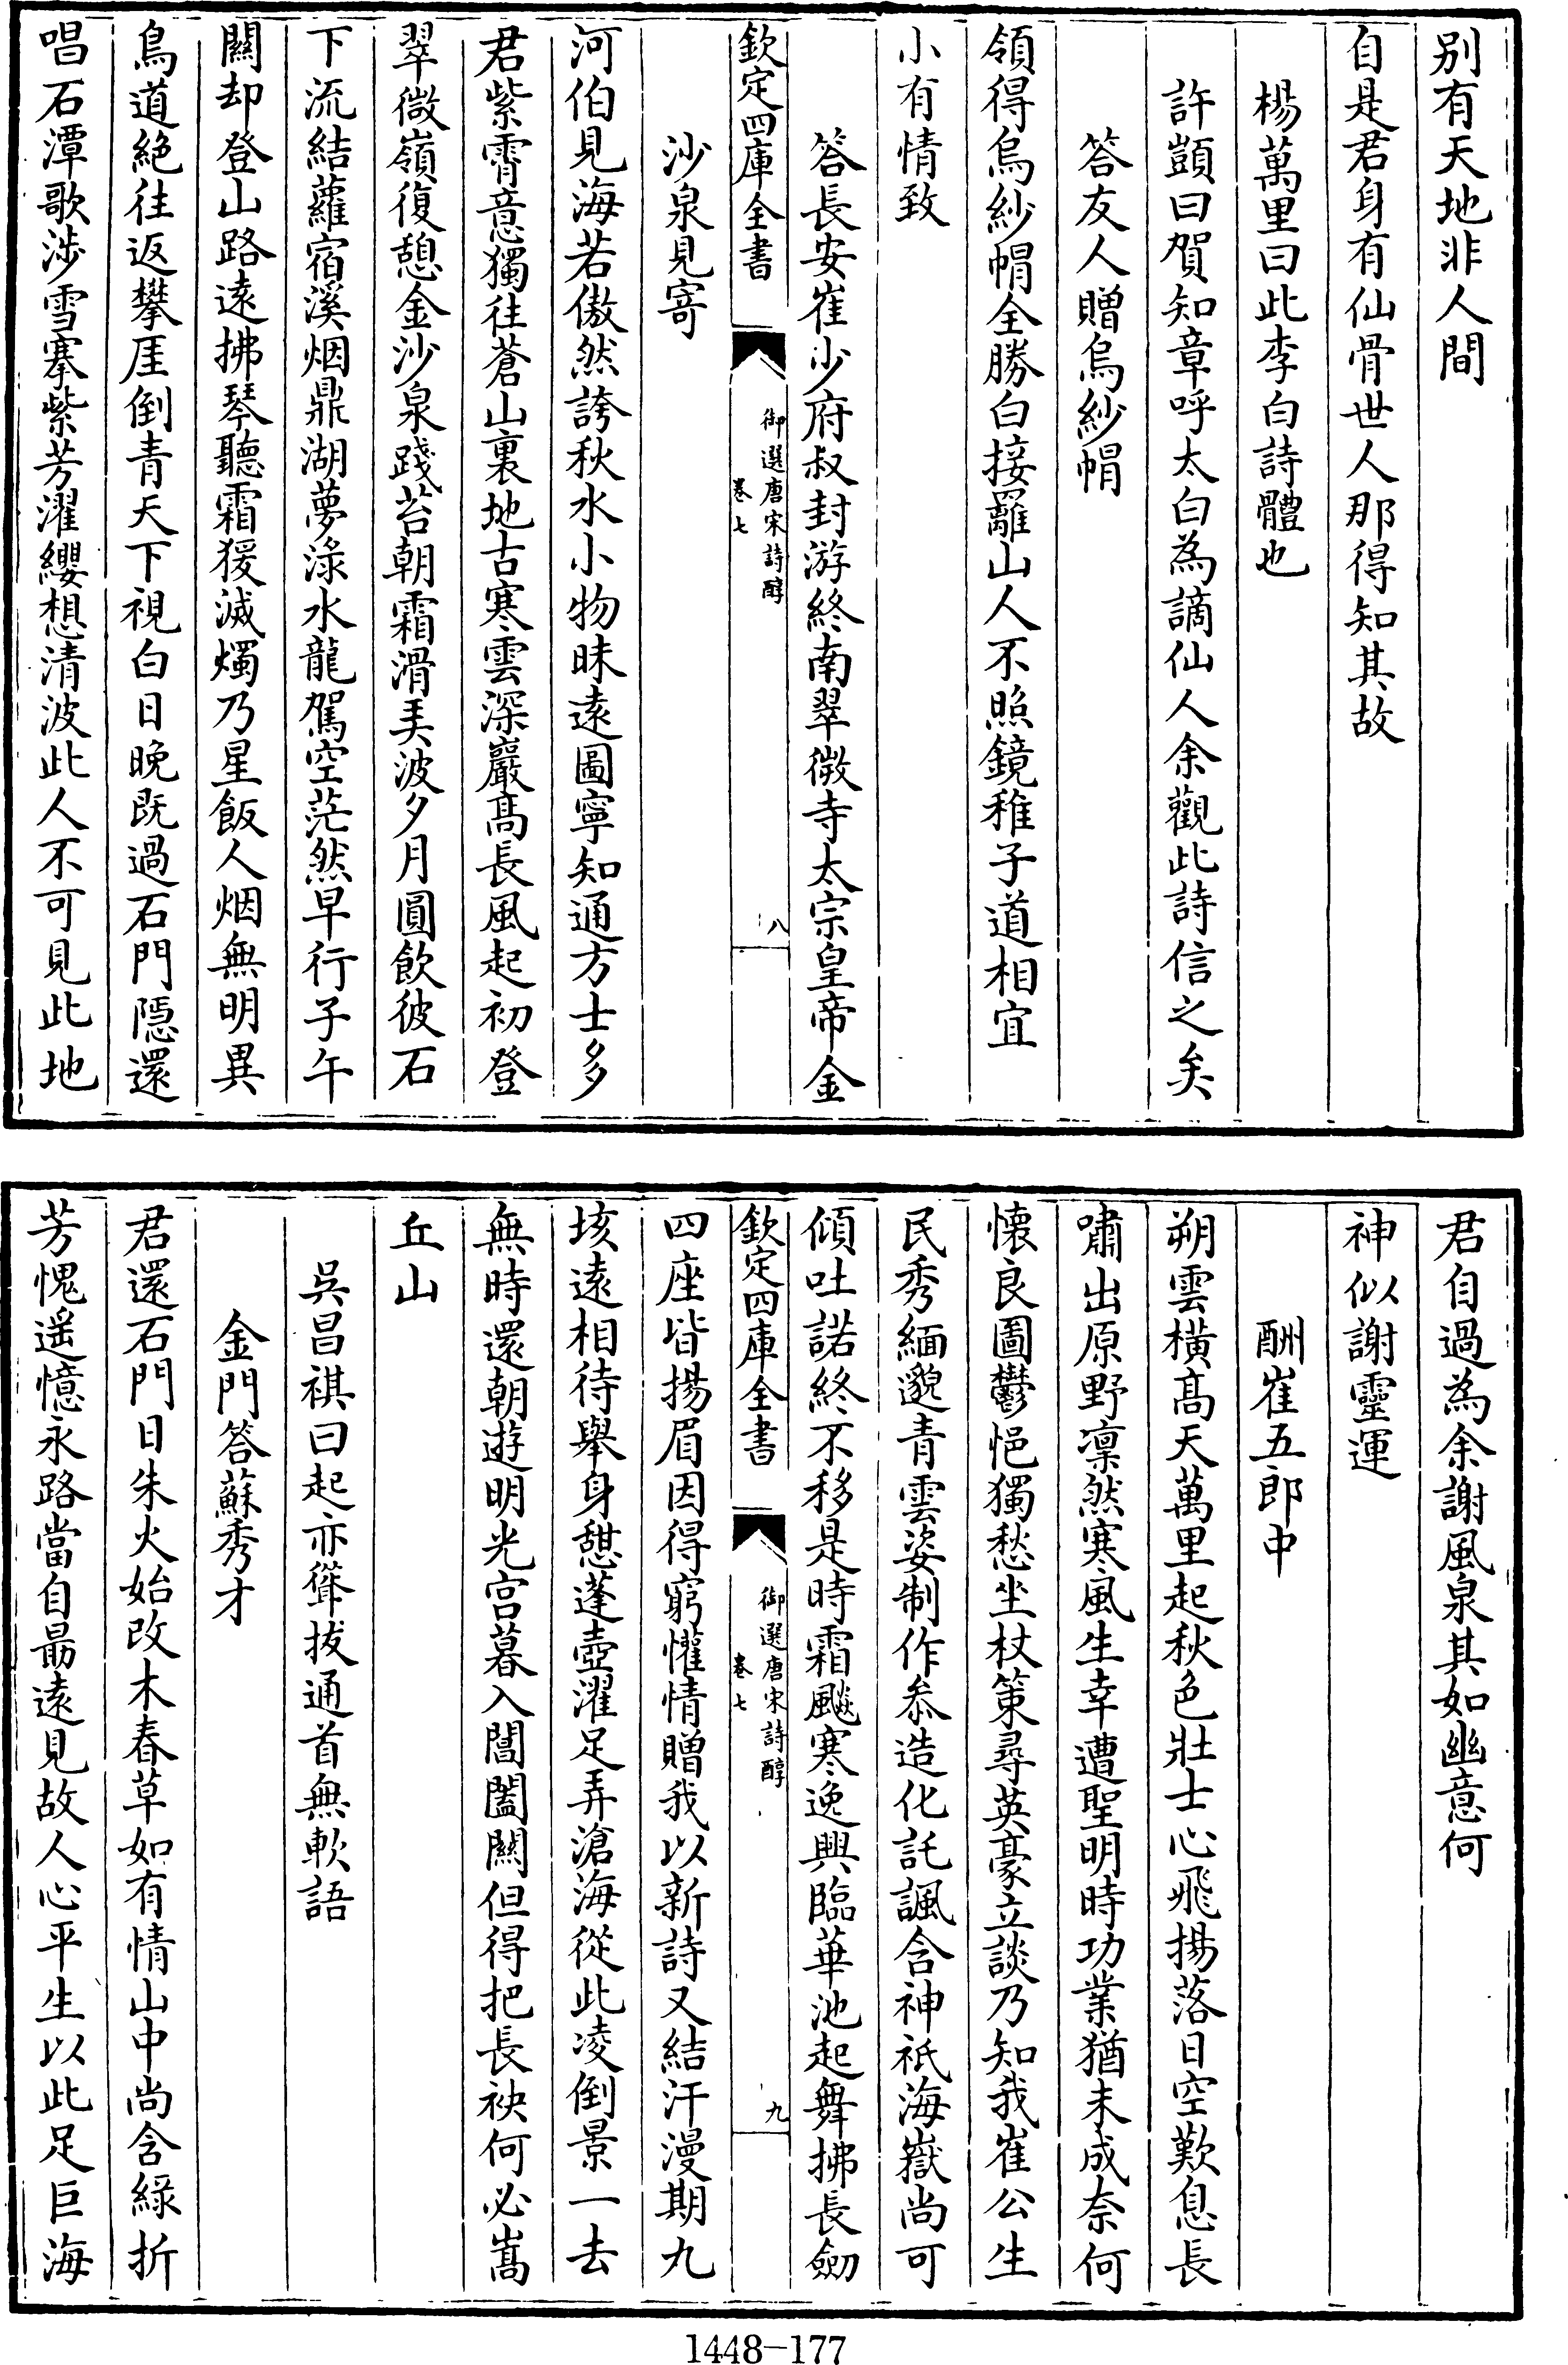 别有天地非人間
自是君身有仙骨世人那得知其故
楊萬里曰此李白詩體也
許顗曰賀知章呼太白為謫仙人余觀此詩信之矣
答友人贈烏紗帽
領得烏紗帽全勝白接䍦山人不照鏡稚子道相宜
小有情致
答長安崔少府叔封游終南翠微寺太宗皇帝金
欽定四庫全書
御選唐宋詩醇
卷七
八
沙泉見寄
河伯見海若傲然誇秋水小物昧遠圖寧知通方士多
君紫霄意獨往蒼山裏地古寒雲深巖髙長風起初登
翠微嶺復憩金沙泉踐苔朝霜滑弄波夕月圓飲彼石
下流結蘿宿溪烟鼎湖夢淥水龍駕空茫然早行子午
闗却登山路逺拂琴聽霜猨滅燭乃星飯人烟無明異
鳥道絶往返攀厓倒青天下視白日晚既過石門隱還
唱石潭歌涉雪搴紫芳濯纓想清波此人不可見此地
君自過為余謝風泉其如幽意何
神似謝靈運
酬崔五郎中
朔雲橫髙天萬里起秋色壯士心飛揚落日空歎息長
嘯出原野凛然寒風生幸遭聖明時功業猶未成奈何
懷良圖鬱悒獨愁坐杖策尋英豪立談乃知我崔公生
民秀緬邈青雲姿制作叅造化託諷含神祇海嶽尚可
傾吐諾終不移是時霜飈寒逸興臨華池起舞拂長劒
欽定四庫全書
御選唐宋詩醇
卷七
九
四座皆揚眉因得窮懽情贈我以新詩又結汗漫期九
垓逺相待舉身憇蓬壺濯足弄滄海從此凌倒景一去
無時還朝遊明光宫暮入閶闔闗但得把長袂何必嵩
丘山
吳昌祺曰起亦聳拔通首無軟語
金門答蘇秀才
君還石門日朱火始改木春草如有情山中尚含緑折
芳愧遥憶永路當自朂逺見故人心平生以此足巨海
1448-177